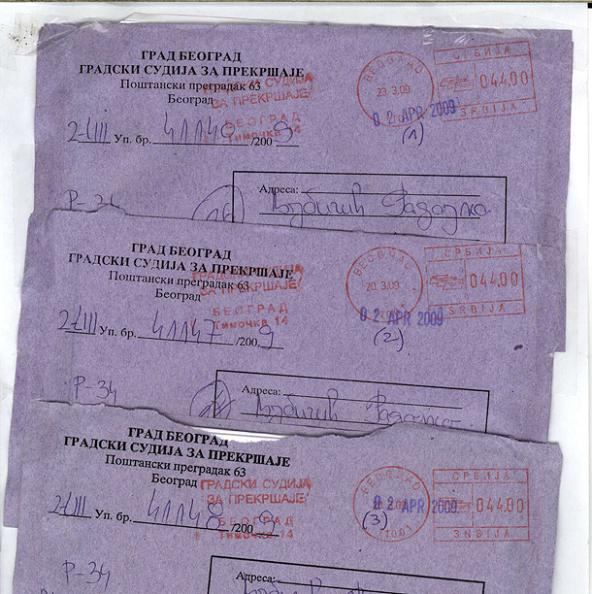 ГРАД БЕОГРАД
ГРАДСКИ СУДИЈА ЗА ПРЕКРШАЈЕ
Поштански преградак 63
Београд
ГРАДСКИ СУДИЈА
ЗА ПРЕКРШАЈЕ
БЕОГРАД
Тимочка 14
БЕОГРАД
23.3.09
СРБИЈА
044.00
SRBIJA
02 APR 2009
(1)
Уп. бр. 41149/2009
Р-34
Адреса:
ГРАД БЕОГРАД
ГРАДСКИ СУДИЈА ЗА ПРЕКРШАЈЕ
Поштански преградак 63
Београд
ГРАДСКИ СУДИЈА
ЗА ПРЕКРШАЈЕ
БЕОГРАД
Тимочка 14
БЕОГРАД
20.3.09
СРБИЈА
044.00
SRBIJA
02 APR 2009
(2)
Уп. бр. 41147/2009
Р-34
Адреса:
ГРАД БЕОГРАД
ГРАДСКИ СУДИЈА ЗА ПРЕКРШАЈЕ
Поштански преградак 63
Београд
ГРАДСКИ СУДИЈА
ЗА ПРЕКРШАЈЕ
БЕОГРАД
Тимочка 14
BEOGRAD
СРБИЈА
044.00
SRBIJA
02 APR 2009
(3)
Уп. бр. 41148/2009
Р-34
Адреса: